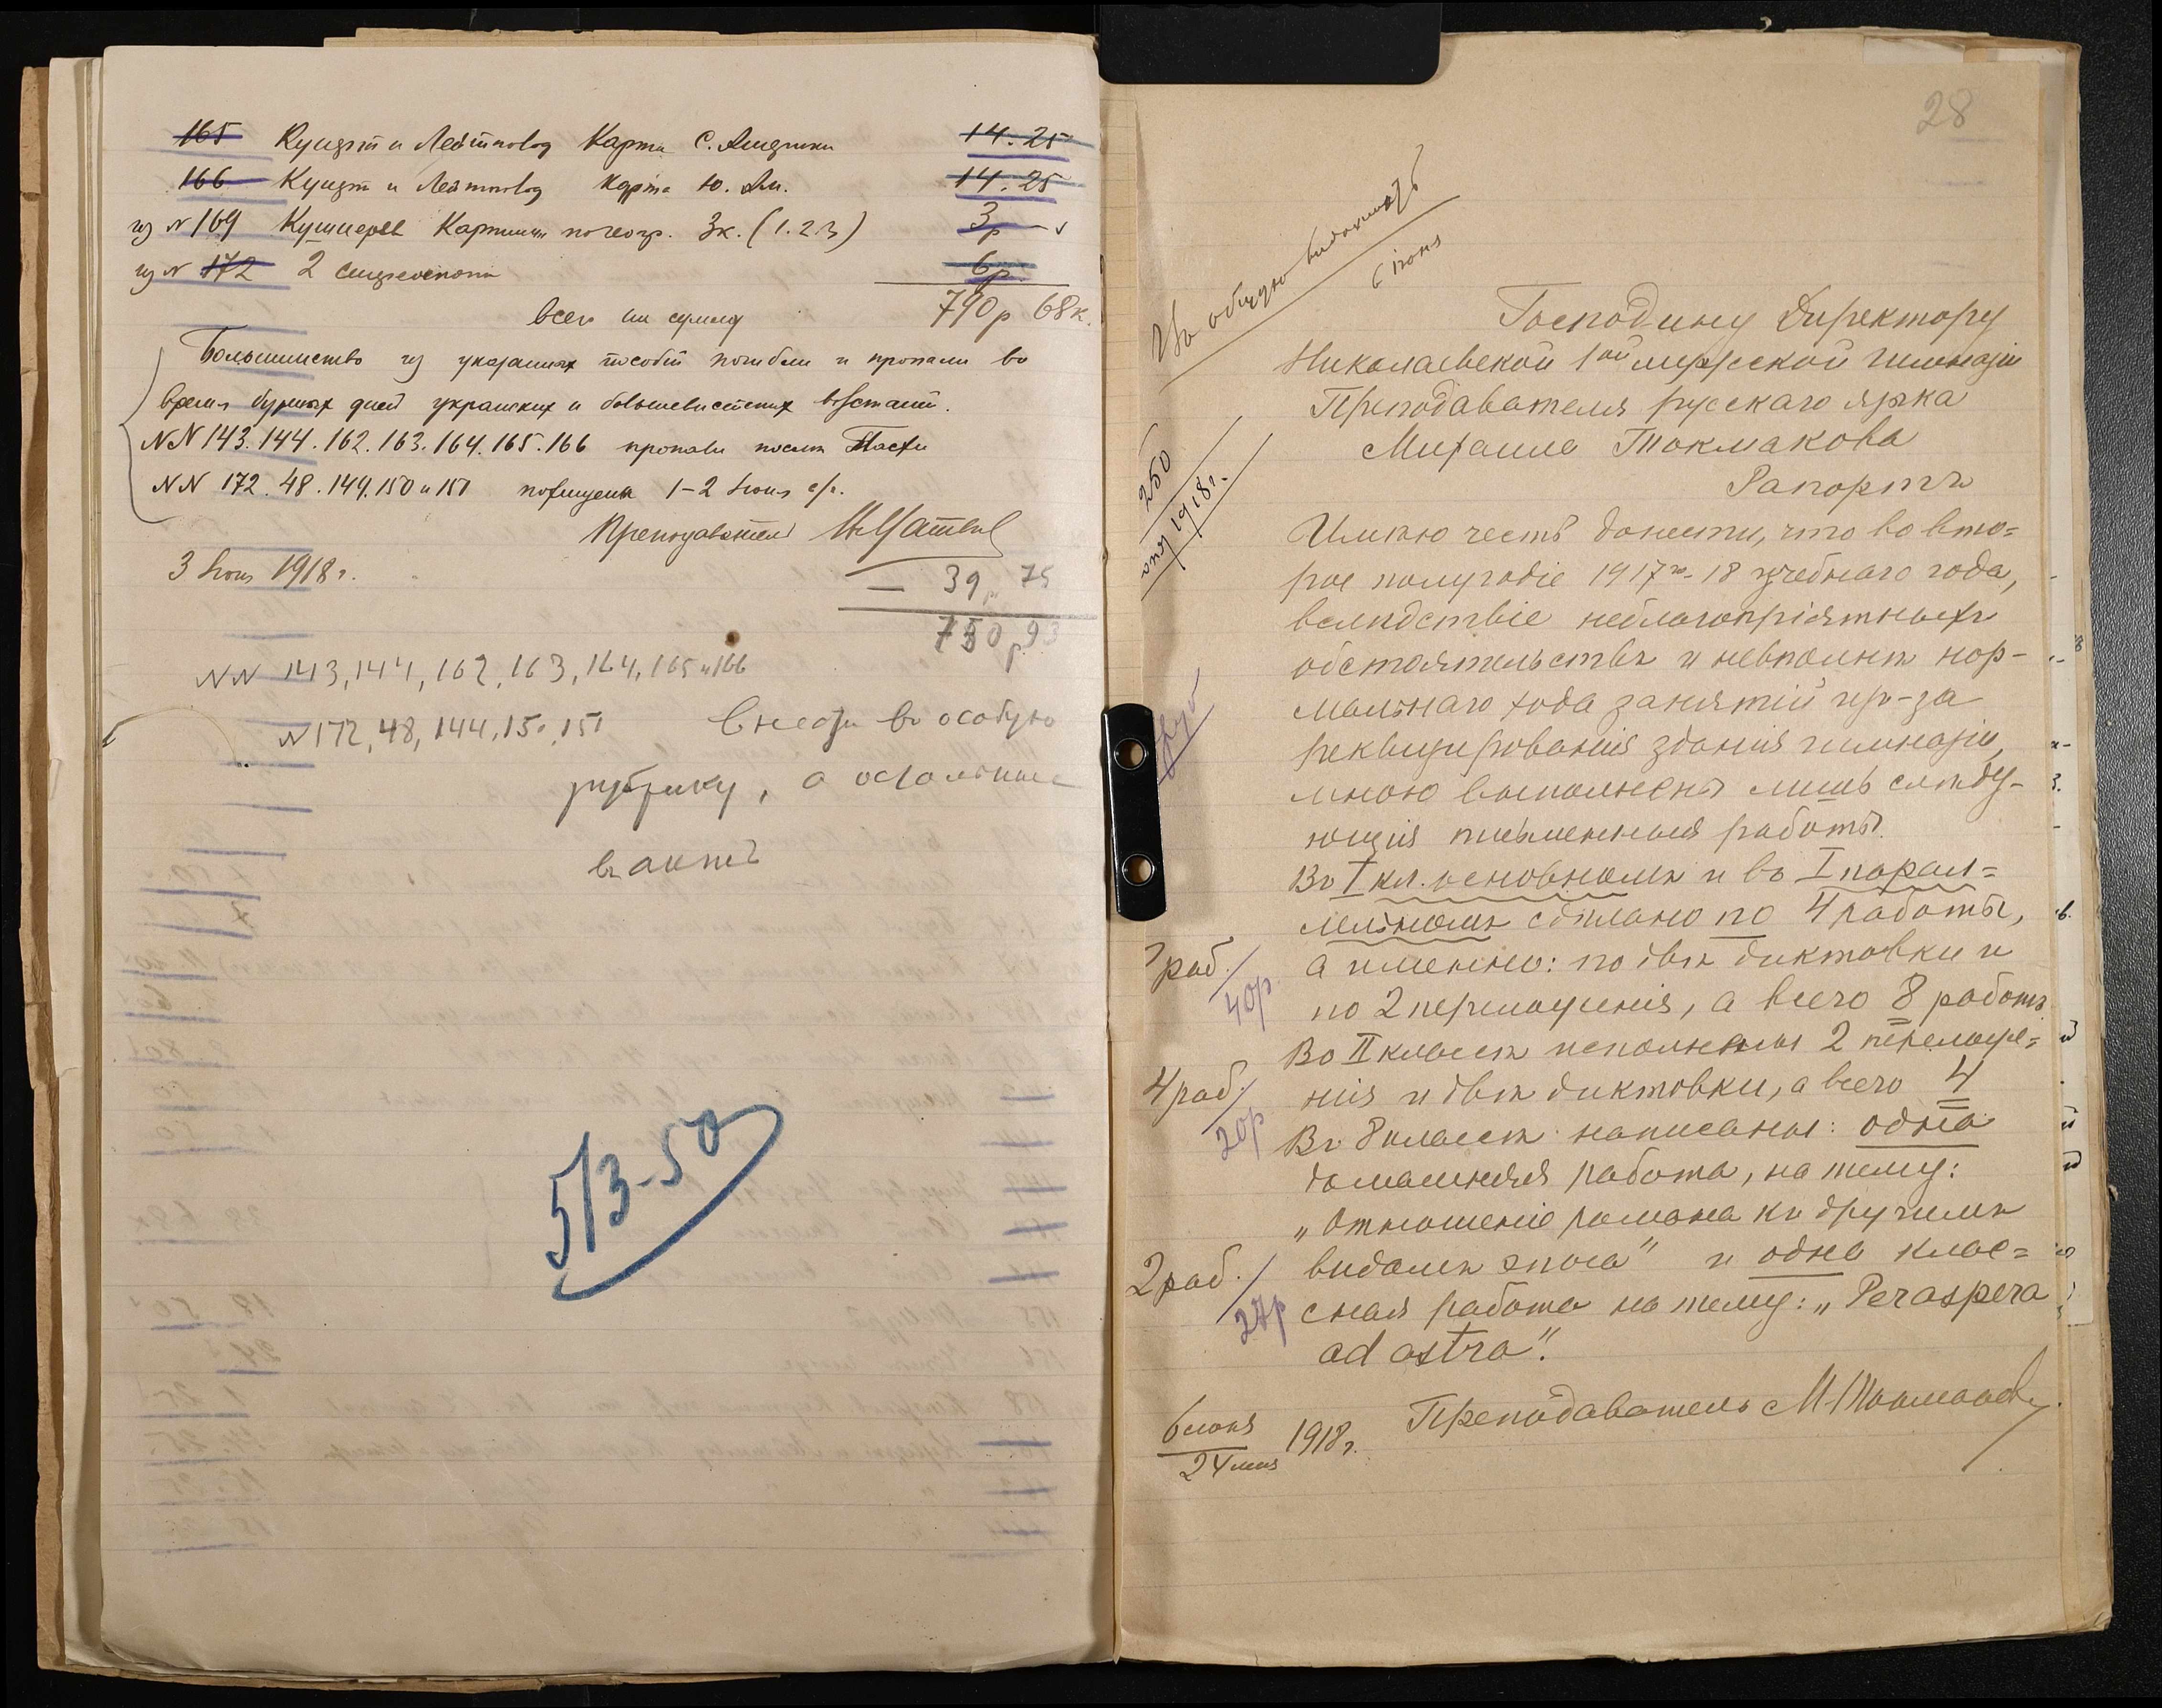 165 Кундт и Лейтпольд Карта С. Америки 14.25
166 Кундт и Лейтпольд Карта Ю. Ам. 14.25
из № 169 Кушнеревъ Картины по геогр. 3к. (1.2.3) 3р
из № 172 2 стереоскопа 6р.
всего на сумму 790р 68к.
Большинство из указанных пособій погибли и пропали во
время бурных дней украинских и большевистских возстаній.
NN 143.144.162.163.164.165.166 пропали послѣ Пасхи
NN 172.48.149.150 и 151 похищены 1-2 Іюня с/г.
Преподаватель
3 Іюня 1918 г.
— 39р 75
750р.93
NN 143, 144, 162, 163, 164, 165 и 166
N 172, 48, 144, 150, 151 внести въ особую
рубрику, а остальные
въ актъ
5/3-50
28
На общую
6 іюня
250
1918г.
Господину Директору
Николаевской 1ой мужской гимназіи
Преподавателя русскаго языка
Михаила Токмакова
Рапортъ
Имѣю честь донести, что во вто=
рое полугодіе 1917го-18 учебнаго года,
вслѣдствіе неблагопріятныхъ
обстоятельствъ и невполнѣ нор-
мальнаго хода занятій из-за
реквизированія зданія гимназіи,
мною выполнены лишь слѣду-
ющія письменныя работы.
Въ I кл. основномъ и въ I парал=
лельномъ сдѣлано по 4 работы,
а именно: по двѣ диктовки и
по 2 переложенія, а всего 8 работъ
раб. 40р
Во II классѣ исполнены 2 переложе=
нія и двѣ диктовки, а всего 4
4 раб. 20р
Въ 8 классѣ написаны: одна
домашняя работа, на тему:
„Отношеніе романа къ другимъ
видамъ эпоса" и одна клас=
2 раб.
сная работа на тему: „Per aspera
ad astra".
Преподаватель М. Токмаковъ
6 іюня
24 мая 1918 г.